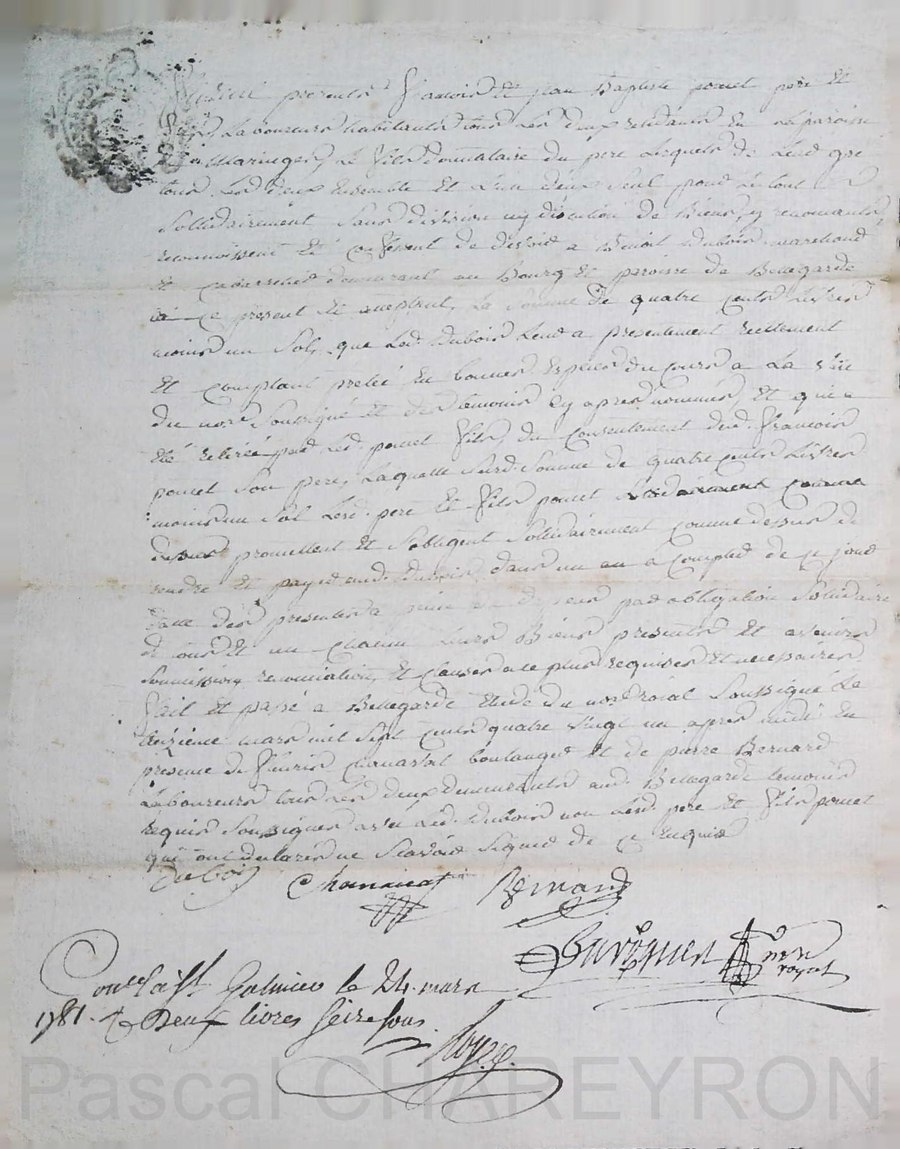 presents françois et jean Baptiste poncet père et
fils Laboureurs habitants tous Les deux en La paroisse
de Maringes, Le fils donnataire du pere Lesquels de Leur gré
tous Les deux Ensemble et L'un deux seul pour Le tout
Sollidairement Sans division ny discution de Biens, y renoncants
reconnoissent et confessent de devoir a Benoit Dubois marchand
et demeurant au Bourg et paroisse de Bellegarde
ici present et aceptant, La Somme de quatre Cents Livres
moins un Sol, que Led. Dubois Leur a presentement reellement
et Comptant preté En bonnes Especes du Cours a La vüe
du nore Soussigné et des temoins cy apres nommés, et qui a
été retirée par Led. poncet fils, du Consentement dud. françois
poncet Son pere, Laquelle Susd. Somme de quatre Cents Livres
moins un Sol Lesd. pere et fils poncet Comme
dessus promettent et S'obligent Sollidairement comme dessus de
rendre et payer aud. Dubois, dans un an a Compter de ce jour
datte des presentes a peine par obligation Solidaire
de tous et un Chacun Leurs Biens presents et avenirs
Soumissions, renonciations, et Clauses a ce plus requises et necessaires,
fait et passé a Bellegarde Etude du nore roial Soussigné Le
mars mil Sept Cents quatre vingt un apres midi En
presence de fleurie Chanavat boulanger et de pierre Bernard
Laboureur tous Les deux demeurants aud. Bellegarde temoins
requis Soussignes avec Led. Dubois non Lesd. pere et fils poncet
qui ont declarés ne Scavoir Signer de ce Enquis
Dubois Chanavat Bernard
nore
royal
Conlé a St. Galmier le 24. mars
1781. R Deux livres seize sous.
Pascal CHAREYRON